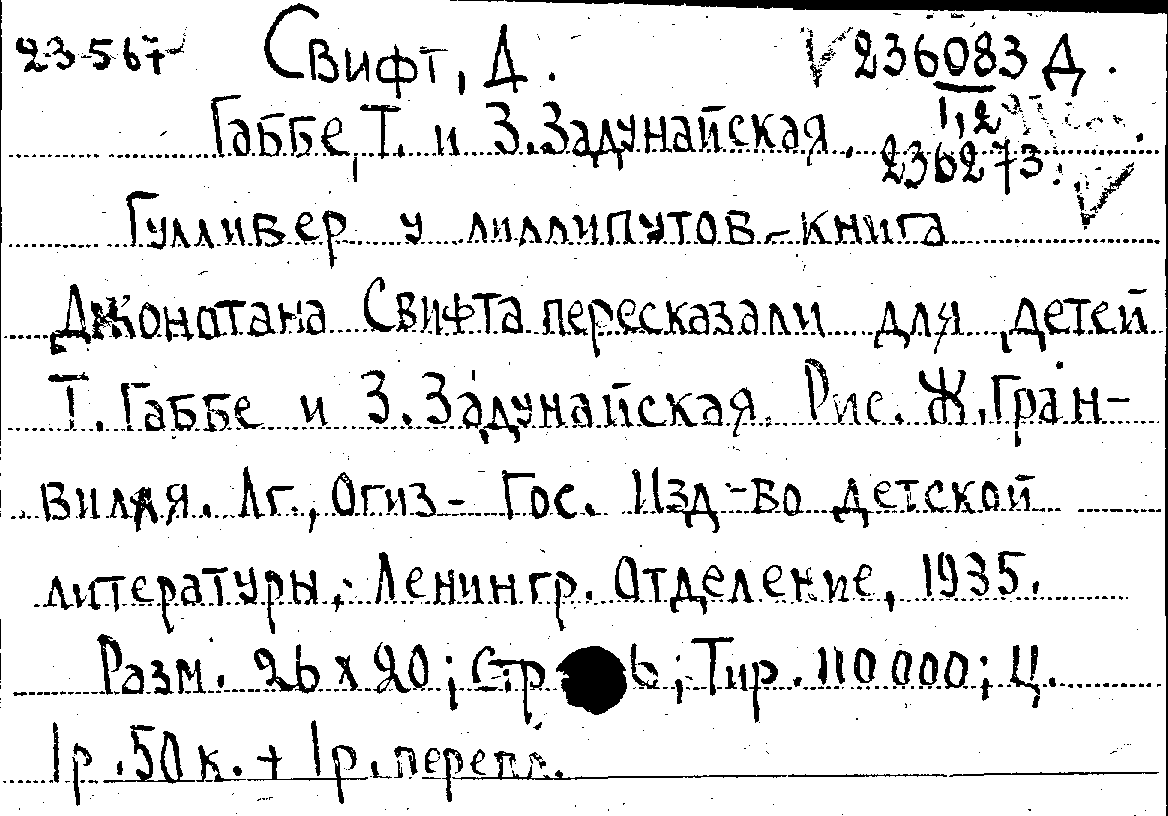 23567 Свифт, Д. 236083 Д.
1,2
Габбе, Т. и З. Задунайская.
236273.
Гулливер у лиллипутов-книга
Джонотана Свифта пересказали для детей
Т. Габбе и З. Задунайская. Рис. Ж. Гран-
вилля. Лг., Огиз- Гос. Изд-во детской
литературы, Ленингр. Отделение, 1935.
Разм. 26 х 20; Стр 6; Тир. 110 000; Ц.
1 р. 50 к. + 1 р. перепл.